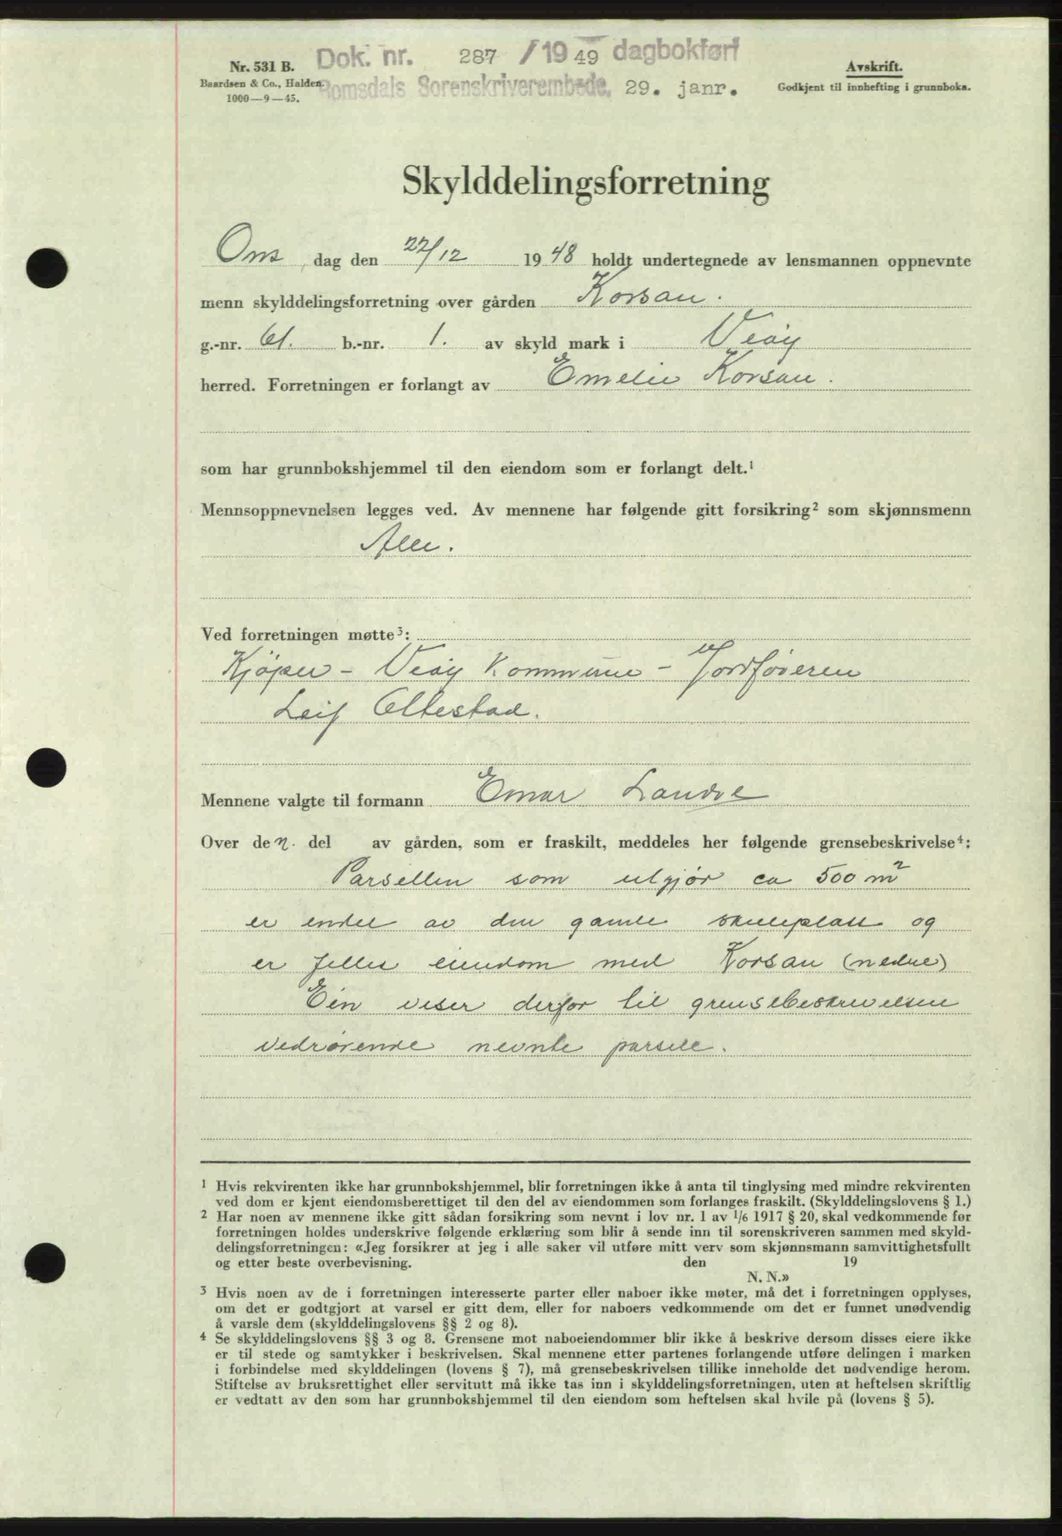 Nr. 531 B.
Baardsen & Co., Halden
1000—9—45.
Dok. nr. 287 / 19 49 dagbokført
Romsdals Sorenskriverembede, 29. janr.
Avskrift.
Godkjent til innhefting i grunnboka.
Skylddelingsforretning
Ons, dag den 22/12 19 48 holdt undertegnede av lensmannen oppnevnte
menn skylddelingsforretning over gården Korsan.
g.-nr. 61. b.-nr. 1. av skyld mark i Veøy
herred. Forretningen er forlangt av Emelie Korsan.
som har grunnbokshjemmel til den eiendom som er forlangt delt.¹
Mennsoppnevnelsen legges ved. Av mennene har følgende gitt forsikring² som skjønnsmenn
Alle.
Ved forretningen møtte³:
Kjøper - Veøy Kommune - v/ Ordføreren
Leif Oltestad.
Mennene valgte til formann Einar Landre
Over den. del av gården, som er fraskilt, meddeles her følgende grensebeskrivelse⁴:
Parsellen som utgjør ca 500 m²
er endel av den gamle skuleplass og
er felles eiendom med Korsan (nedre)
Ein viser derfor til grensebeskrivelsen
vedrørende nevnte parsell.
¹ Hvis rekvirenten ikke har grunnbokshjemmel, blir forretningen ikke å anta til tinglysing med mindre rekvirenten
ved dom er kjent eiendomsberettiget til den del av eiendommen som forlanges fraskilt. (Skylddelingslovens § 1.)
² Har noen av mennene ikke gitt sådan forsikring som nevnt i lov nr. 1 av 1/6 1917 § 20, skal vedkommende før
forretningen holdes underskrive følgende erklæring som blir å sende inn til sorenskriveren sammen med skyld-
delingsforretningen: «Jeg forsikrer at jeg i alle saker vil utføre mitt verv som skjønnsmann samvittighetsfullt
og etter beste overbevisning. den 19
N. N.»
³ Hvis noen av de i forretningen interesserte parter eller naboer ikke møter, må det i forretningen opplyses,
om det er godtgjort at varsel er gitt dem, eller for naboers vedkommende om det er funnet unødvendig
å varsle dem (skylddelingslovens §§ 2 og 8).
⁴ Se skylddelingslovens §§ 3 og 8. Grensene mot naboeiendommer blir ikke å beskrive dersom disses eiere ikke
er til stede og samtykker i beskrivelsen. Skal mennene etter partenes forlangende utføre delingen i marken
i forbindelse med skylddelingen (lovens § 7), må grensebeskrivelsen tillike inneholde det nødvendige herom.
Stiftelse av bruksrettighet eller servitutt må ikke tas inn i skylddelingsforretningen, uten at heftelsen skriftlig
er vedtatt av den som har grunnbokshjemmel til den eiendom som heftelsen skal hvile på (lovens § 5).